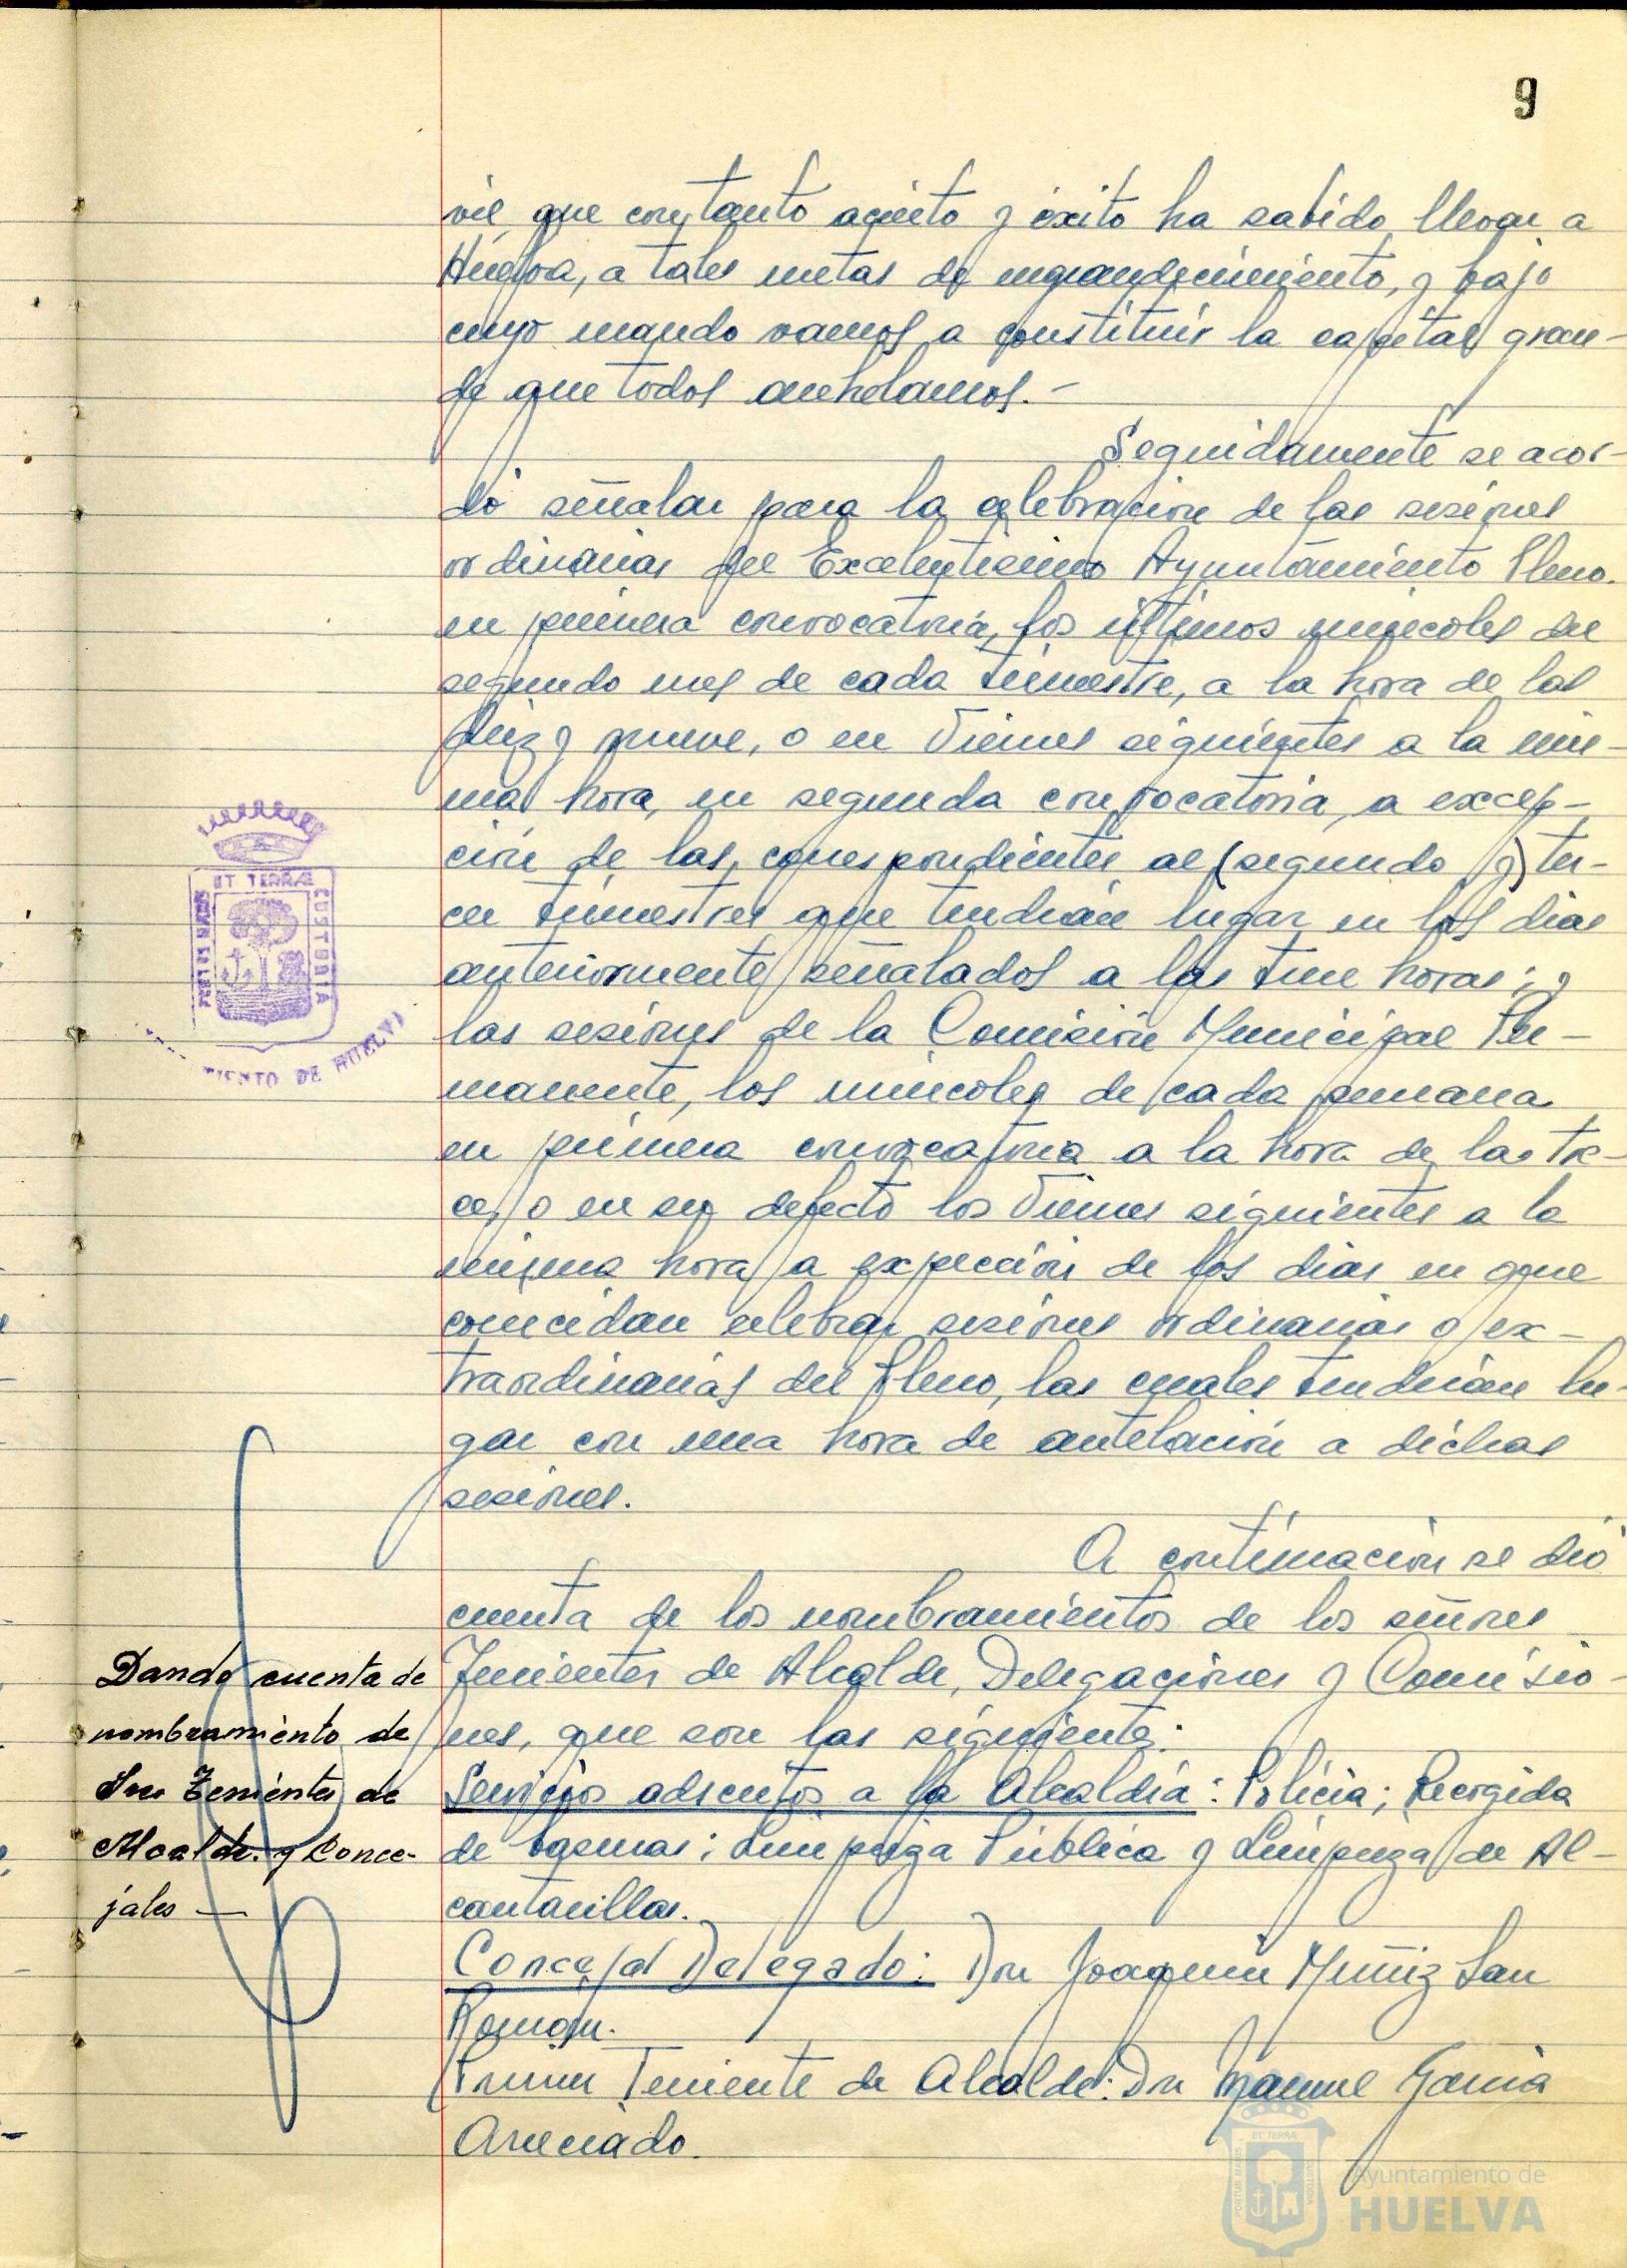 9
vil, que con tanto acierto y éxito ha sabido llevar a
Huelva, a tales metas de engrandecimiento, y bajo
cuyo mando vamos a constituir la capital gran-
de que todos anhelamos.-
Seguidamente se acor-
dó señalar para la celebracion de las sesiones
ordinarias del Excelentisimo Ayuntamiento Pleno.
en primera convocatoria, los últimos miercoles del
segundo mes de cada trimestre, a la hora de las
diez y nueve, o en Viernes siguientes a la mis-
ma hora, en segunda convocatoria, a excep-
ción de las correspondientes al (segundo y) ter-
cer trimestres que tendrán lugar en los dias
anteriormente señalados a las trece horas; y
las sesiones de la Comisión Municipal Per-
manente, los miercoles de cada semana
en primera convocatoria a la hora de las tre-
ce, o en su defecto los Viernes siguientes a la
misma hora, a expeción de los dias en que
coincidan celebrar sesiones ordinarias o ex-
traordinarias del Pleno, las cuales tendrián lu-
gar con una hora de antelación a dichas
sesiones.
A continuación se dió
cuenta de los nombramientos de los señores
Tenientes de Alcalde, Delegaciones y Comisio-
nes, que son las siguiente:
Servicios adscritos a la Alcaldía: Policia; Recogida
de basuras; Limpieza Pública y Limpieza de Al-
cantarillas.
Concejal Delegado: Don Joaquin Muñiz San
Román.
Primer Teniente de Alcalde: Don Manuel Garcia
Dando cuenta de
nombramiento de
Sres Tenientes de
Alcalde y Conce-
jales —
ET TERRÆ
CUSTODIA
PORTUS MARIS
MIENTO DE HUELVA
Ayuntamiento de
HUELVA